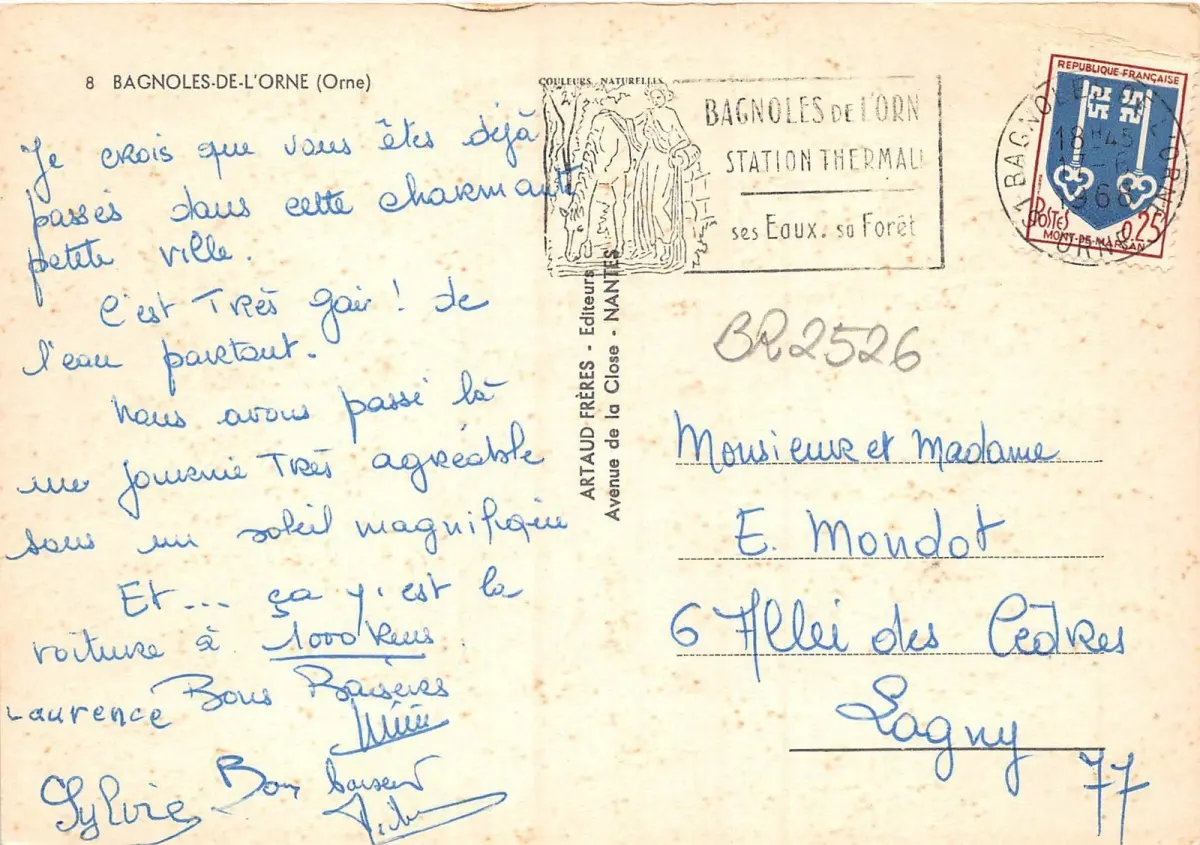 8 BAGNOLES-DE-L'ORNE (Orne)
Je crois que vous êtes déjà
passés dans cette charmante
petite ville.
C'est Très gai ! de
l'eau partout.
Nous avons passé là
une journée Très agréable
sous un soleil magnifique
Et... ça y. est la
voiture à 1000 kms
Bons Baisers
Laurence
Sylvie
Bons baisers
COULEURS NATURELLES
BAGNOLES DE L'ORN
STATION THERMAL
ses Eaux. sa Forêt
REPUBLIQUE-FRANÇAISE
POSTES
0,25
MONT-DE-MARSAN
BAGNOLES DE L'ORNE
18 H 45
17-6
1968
ORNE
ARTAUD FRÈRES - Editeurs
Avenue de la Close - NANTES
BR2526
Monsieur et Madame
E. Mondot
6 Allei des Cèdres
Lagny
77